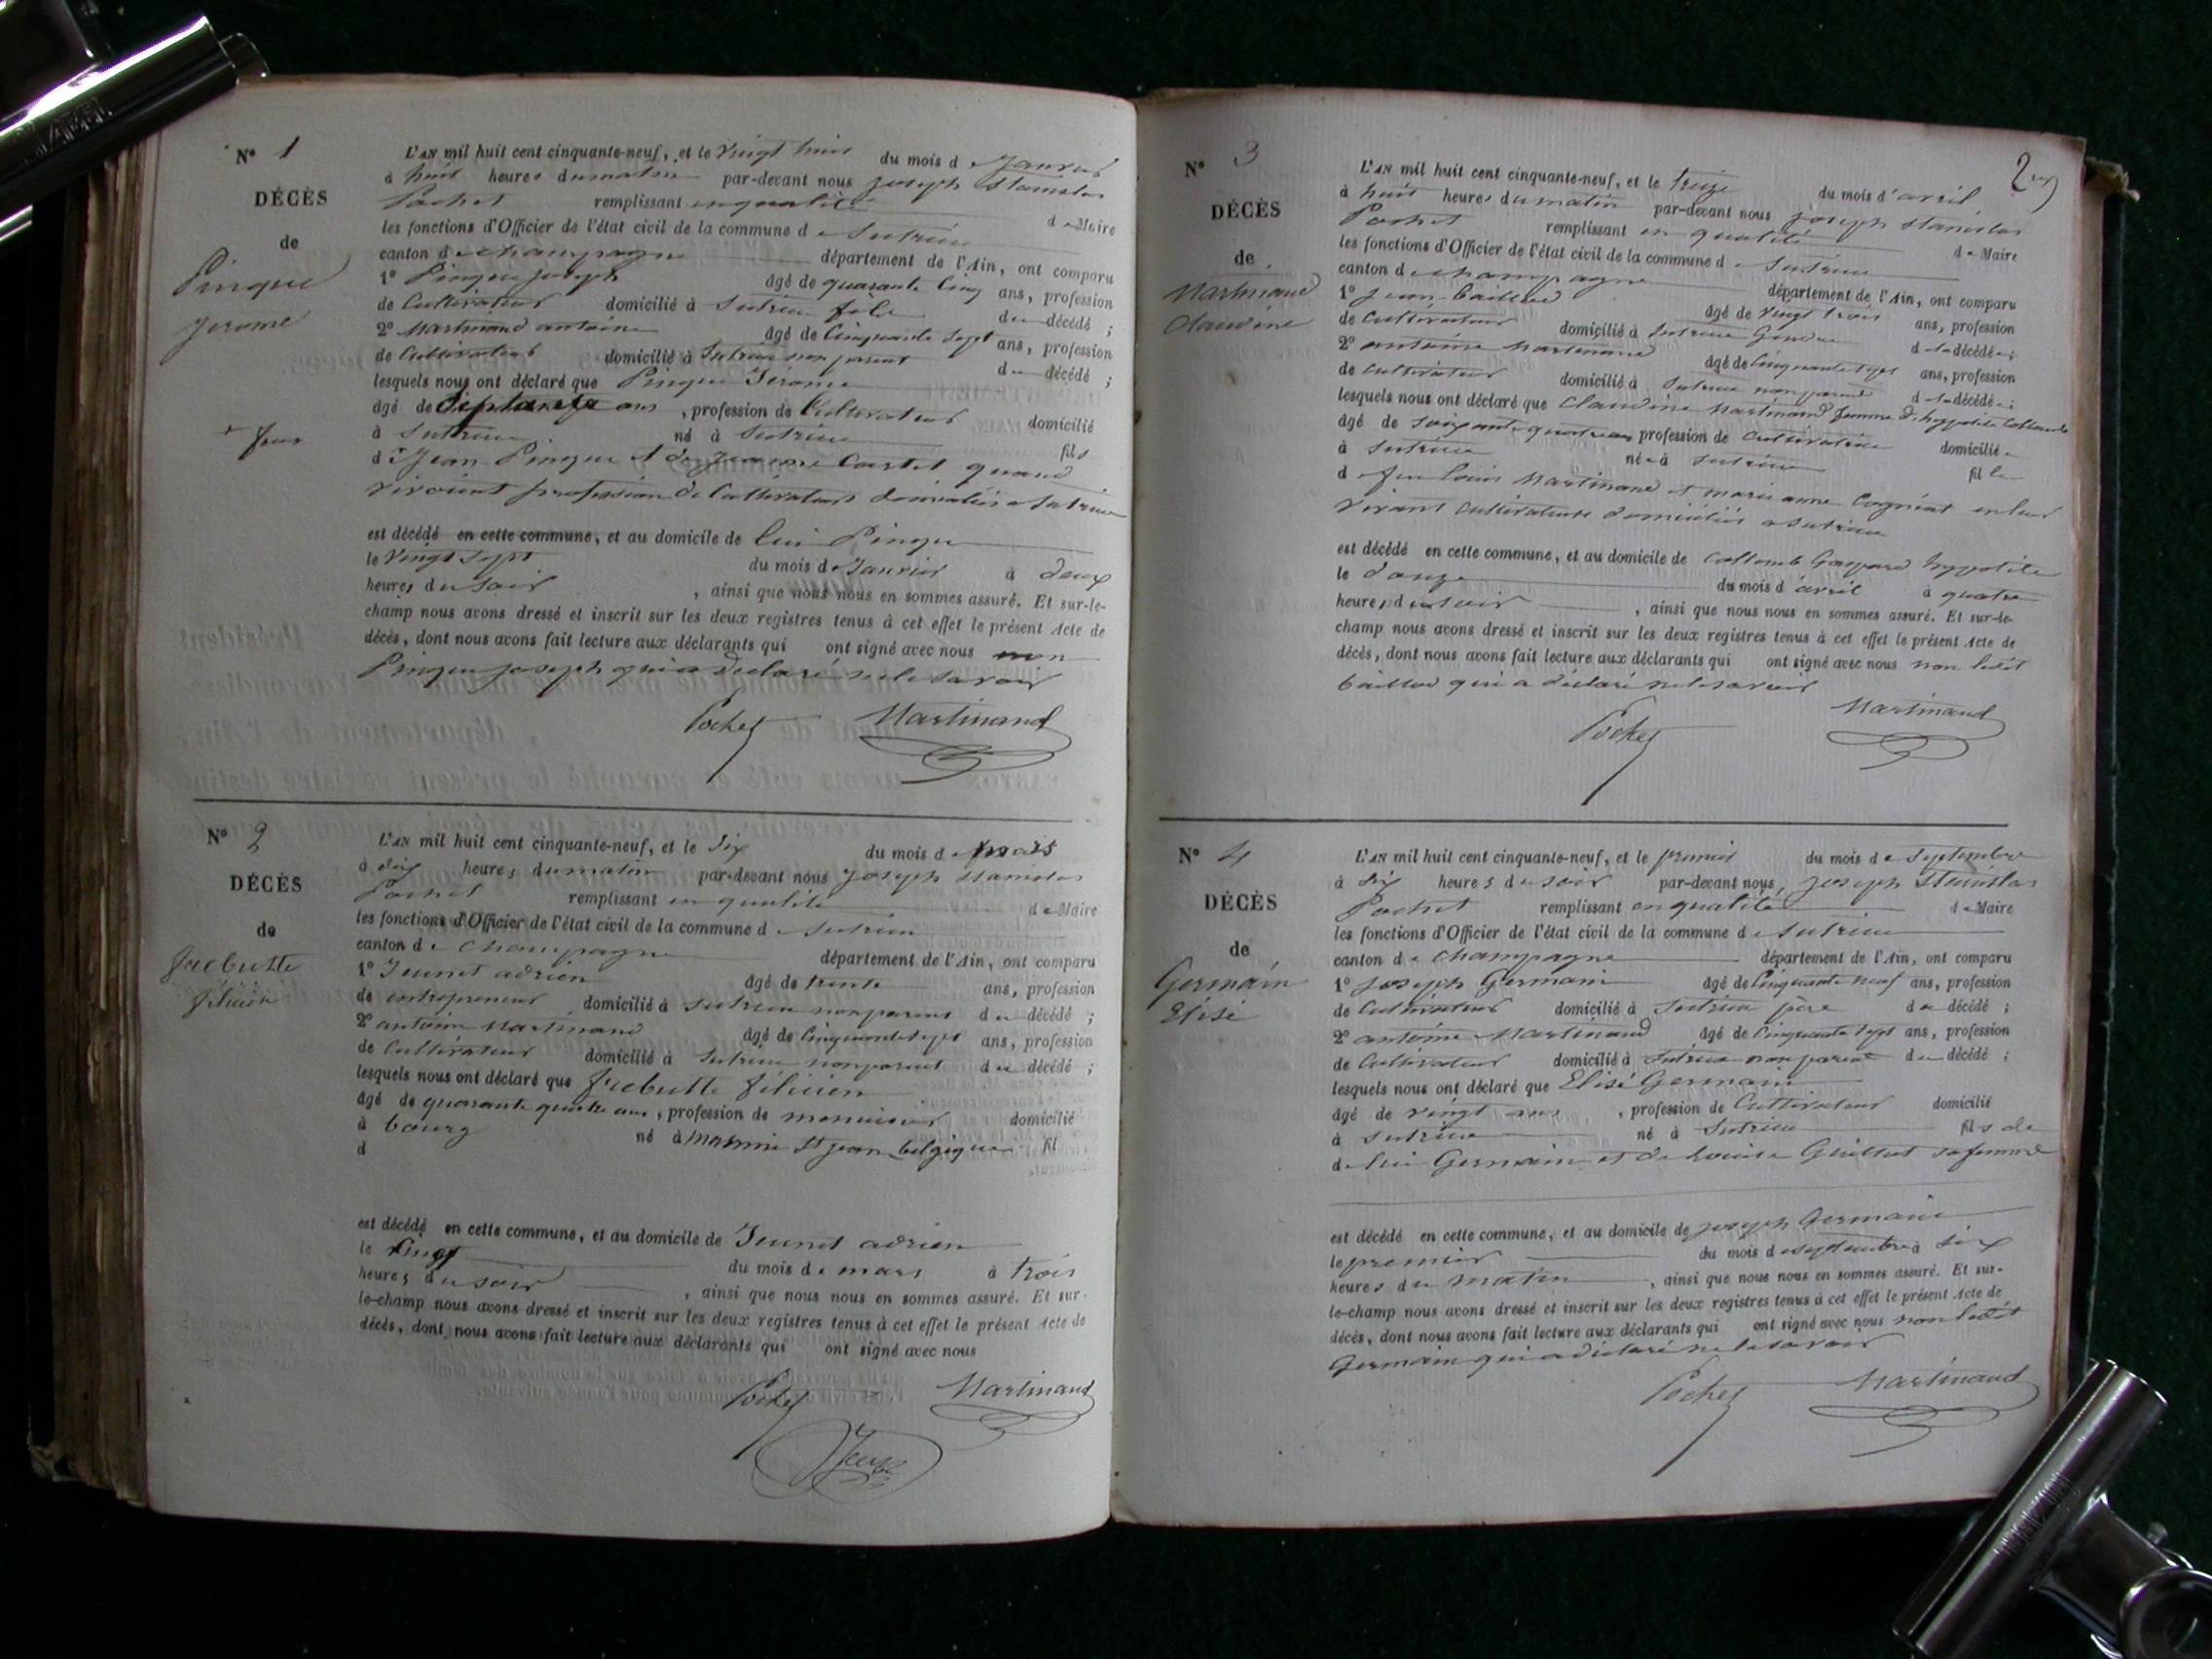 N° 1
DÉCÈS
de
Pingue
Jerome
+ feu
L'AN mil huit cent cinquante-neuf, et le vingt huit du mois de Janvier
à huit heures du matin par-devant nous Joseph Stanislas
Pochet remplissant en qualité de Maire
les fonctions d'Officier de l'état civil de la commune de Sutrieu
canton de champagne département de l'Ain, ont comparu
1° Pingue Joseph âgé de quarante Cinq ans, profession
de Cultivateur domicilié à Sutrieu fils du décédé ;
2° Martinand antoine âgé de Cinquante Sept ans, profession
de Cultivateur domicilié à Sutrieu non parent du décédé ;
lesquels nous ont déclaré que Pingue Jérome
âgé de Septante ans, profession de Cultivateur domicilié
à Sutrieu né à Sutrieu fils
d + Jean Pingue et de Jeanne Castel quand
vivoient profession de Cultivateurs domiciliés a Sutrieu
est décédé en cette commune, et au domicile de lui Pingue
le vingt sept du mois de Janvier à deux
heures du soir, ainsi que nous nous en sommes assuré. Et sur-le-
champ nous avons dressé et inscrit sur les deux registres tenus à cet effet le présent Acte de
décès, dont nous avons fait lecture aux déclarants qui ont signé avec nous non
Pingue Joseph qui a déclaré ne le savoir
Pochet Martinand
N° 2
DÉCÈS
de
frebutte
félicien
L'AN mil huit cent cinquante-neuf, et le six du mois de mars
à dix heures du matin par-devant nous Joseph Stanislas
Pochet remplissant en qualité de Maire
les fonctions d'Officier de l'état civil de la commune de Sutrieu
canton de Champagne département de l'Ain, ont comparu
1° Jeunet adrien âgé de trente ans, profession
de entrepreneur domicilié à Sutrieu non parent du décédé ;
2° antoine Martinand âgé de Cinquante sept ans, profession
de Cultivateur domicilié à Sutrieu non parent du décédé ;
lesquels nous ont déclaré que frebutte félicien
âgé de quarante quatre ans, profession de menuisier domicilié
à bourg né à St jean belgique fil
d
est décédé en cette commune, et au domicile de Jeunet adrien
le Cinq du mois de mars à trois
heures du soir, ainsi que nous nous en sommes assuré. Et sur-
le-champ nous avons dressé et inscrit sur les deux registres tenus à cet effet le présent Acte de
décès, dont nous avons fait lecture aux déclarants qui ont signé avec nous
Pochet Martinand
N° 3
DÉCÈS
de
Martinand
Claudine
L'AN mil huit cent cinquante-neuf, et le treize du mois d'avril
à huit heures du matin par-devant nous Joseph Stanislas
Pochet remplissant en qualité de Maire
les fonctions d'Officier de l'état civil de la commune de Sutrieu
canton de champagne département de l'Ain, ont comparu
1° Jean baillod âgé de vingt trois ans, profession
de Cultivateur domicilié à Sutrieu Gendre de la décédée ;
2° antoine Martinand âgé de Cinquante sept ans, profession
de Cultivateur domicilié à Sutrieu non parent de la décédée ;
lesquels nous ont déclaré que Claudine Martinand femme d'hyppolite Collomb
âgé de soixante quatre ans profession de Cultivatrice domiciliée
à Sutrieu née à Sutrieu fille
de feu louis Martinand et marie anne Cognat en leur
vivant Cultivateurs domiciliés a Sutrieu
est décédé en cette commune, et au domicile de Collomb Gaspard hyppolite
le douze du mois d'avril à quatre
heures du soir, ainsi que nous nous en sommes assuré. Et sur-le-
champ nous avons dressé et inscrit sur les deux registres tenus à cet effet le présent Acte de
décès, dont nous avons fait lecture aux déclarants qui ont signé avec nous non ledit
baillod qui a déclaré ne le savoir
Pochet Martinand
N° 4
DÉCÈS
de
Germain
Elisé
L'AN mil huit cent cinquante-neuf, et le premier du mois de Septembre
à six heures du soir par-devant nous, Joseph Stanislas
Pochet remplissant en qualité de Maire
les fonctions d'Officier de l'état civil de la commune de Sutrieu
canton de Champagne département de l'Ain, ont comparu
1° Joseph Germain âgé de Cinquante neuf ans, profession
de Cultivateur domicilié à Sutrieu père du décédé ;
2° antoine Martinand âgé de Cinquante sept ans, profession
de Cultivateur domicilié à Sutrieu non parent du décédé ;
lesquels nous ont déclaré que Elisé Germain
âgé de vingt ans, profession de Cultivateur domicilié
à Sutrieu né à Sutrieu fils de
de lui Germain et de Louise Guillot sa femme
est décédé en cette commune, et au domicile de Joseph Germain
le premier du mois de septembre à six
heures du matin, ainsi que nous nous en sommes assuré. Et sur-
le-champ nous avons dressé et inscrit sur les deux registres tenus à cet effet le présent Acte de
décès, dont nous avons fait lecture aux déclarants qui ont signé avec nous non ledit
Germain qui a déclaré ne le savoir
Pochet Martinand